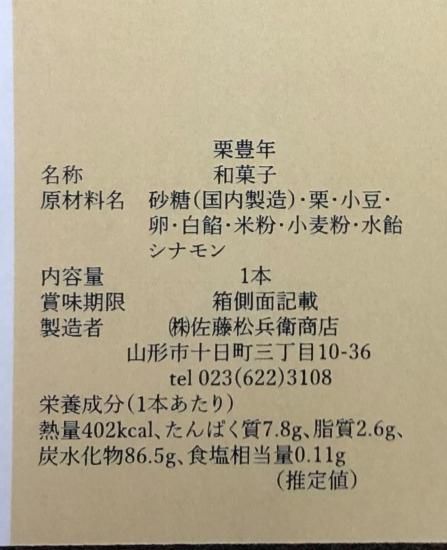 栗豊年
名称 和菓子
原材料名 砂糖(国内製造)・栗・小豆・
卵・白餡・米粉・小麦粉・水飴
シナモン
内容量 1本
賞味期限 箱側面記載
製造者 ㈱佐藤松兵衛商店
山形市十日町三丁目10-36
tel 023(622)3108
栄養成分(1本あたり)
熱量402kcal、たんぱく質7.8g、脂質2.6g、
炭水化物86.5g、食塩相当量0.11g
(推定値)